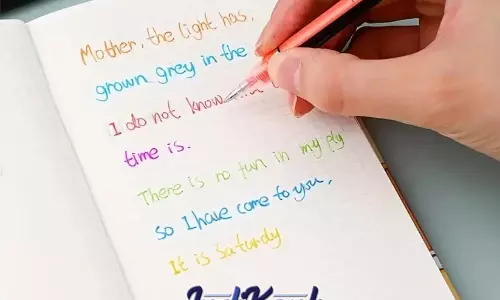 Mother, the light has.
grown grey in the
I do not know
time is.
There is no fun in my ply
so I have come to you,
It is Saturdy